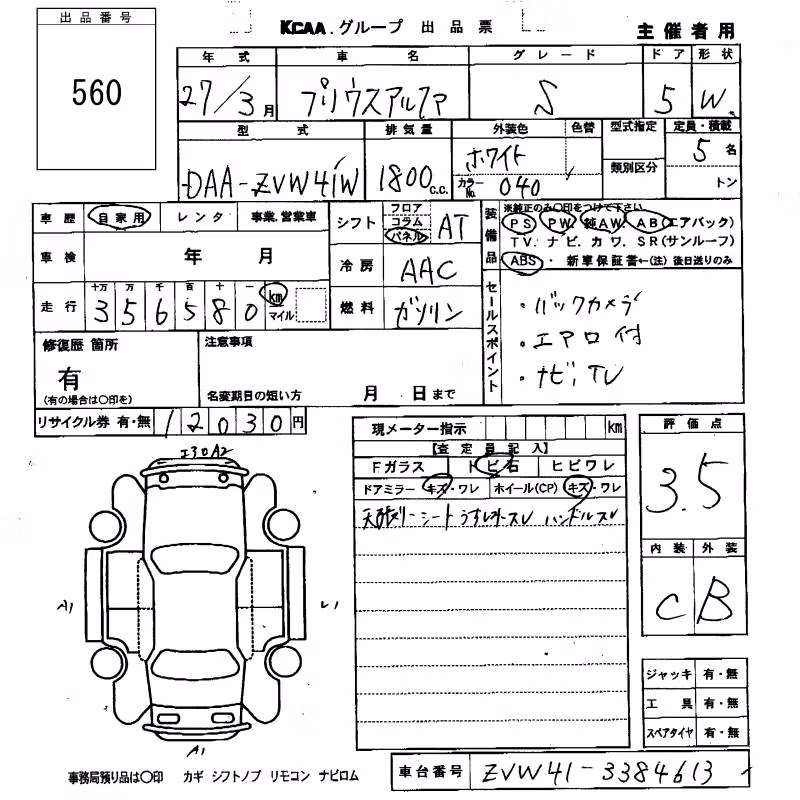 出品番号
560
KCAA.グループ 出品票
主催者用
年式 車名 グレード ドア 形状
27/3月 プリウスアルファ S 5 W
型式 排気量 外装色 色替 型式指定 定員・積載
DAA-ZVW41W 1800c.c. ホワイト 5名
カラーNo. 040 類別区分 トン
車歴 自家用 レンタ 事業.営業車
シフト フロア コラム パネル AT
装備品 ※純正のみ○印をつけて下さい
PS PW. 純AW. AB(エアバック)
TV. ナビ. カワ. SR(サンルーフ)
ABS・新車保証書←(注)後日送りのみ
車検 年 月
冷房 AAC
走行 十万 万 千 百 十 一 km マイル
3 5 6 5 8 0
燃料 ガソリン
セールスポイント
・バックカメラ
・エアロ付
・ナビ,TV
修復歴 箇所
有
(有の場合は○印を)
注意事項
名変期日の短い方 月 日まで
リサイクル券 有・無 12030円
現メーター指示 km
【査定員記入】
Fガラス トビ石 ヒビワレ
ドアミラー キズ・ワレ ホイール(CP) キズ・ワレ
天張リーシート ハンドルスレ
評価点
3.5
内装 外装
C B
エ30A2
A1
A1
ジャッキ 有・無
工具 有・無
スペアタイヤ 有・無
事務局預り品は○印 カギ シフトノブ リモコン ナビロム
車台番号 ZVW41-3384613